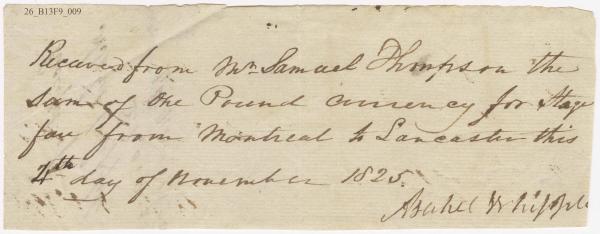 26_B13F9_009
Received from Mr Samuel Thompson the
Sum of One Pound Currency for Stage
fare from Montreal to Lancaster this
4th day of November 1825.
Asahel Whipple